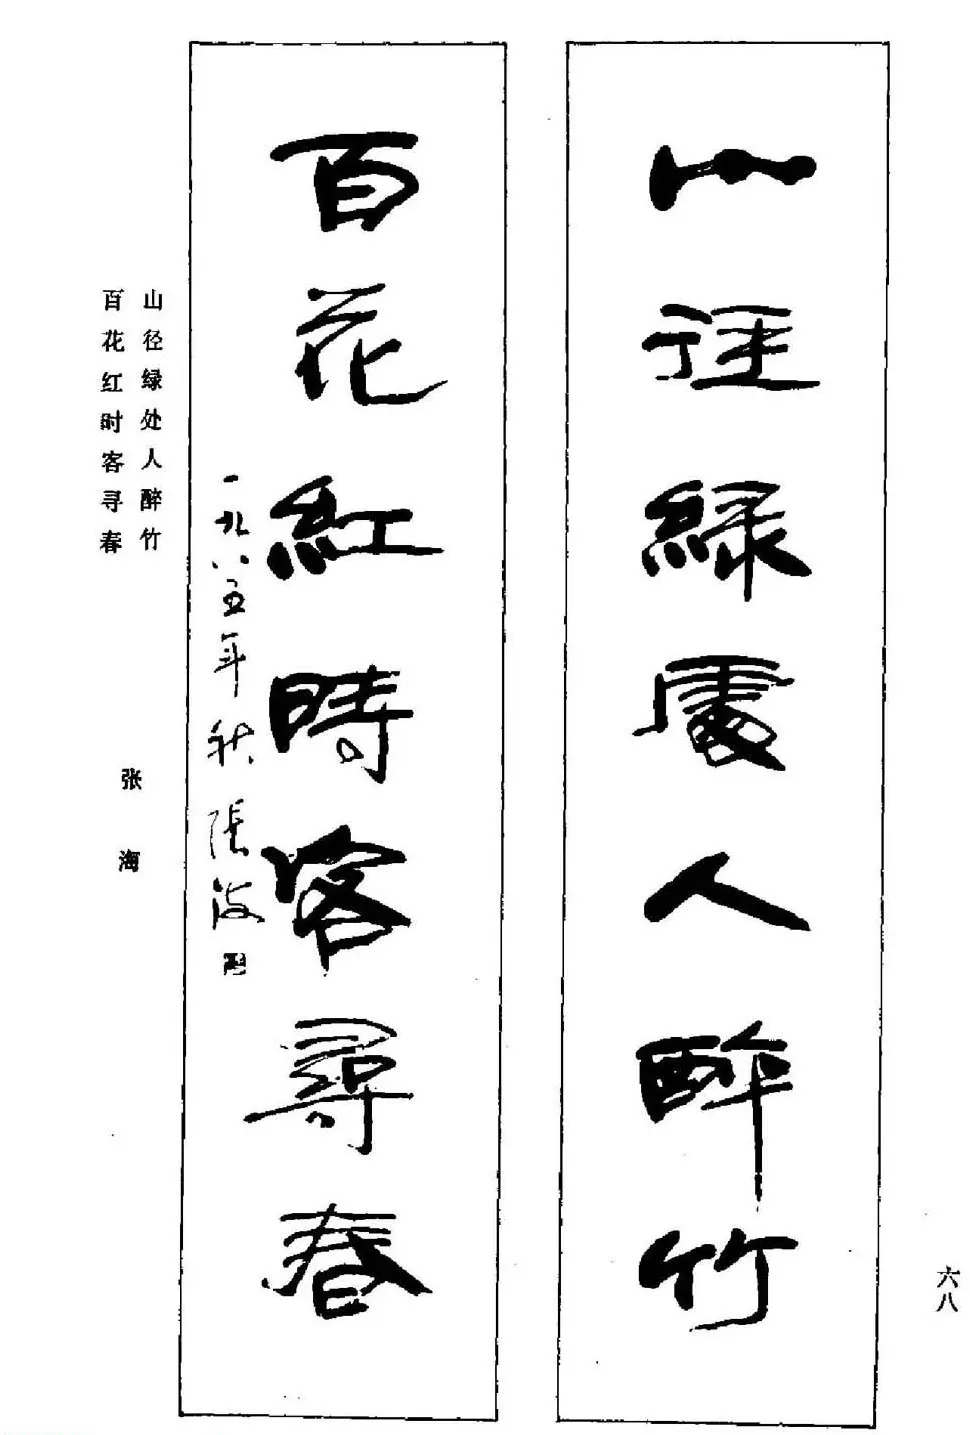 山徑綠處人醉竹
百花紅時客尋春
一九八五年秋張海
山径绿处人醉竹
百花红时客寻春
张海
六八